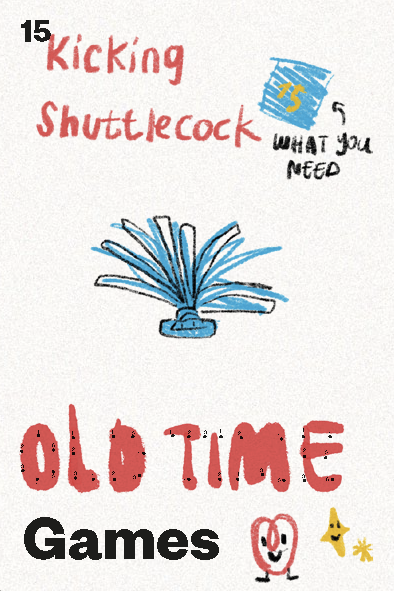 15
Kicking
Shuttlecock
15
WHAT YOU
NEED
OLD TIME
Games